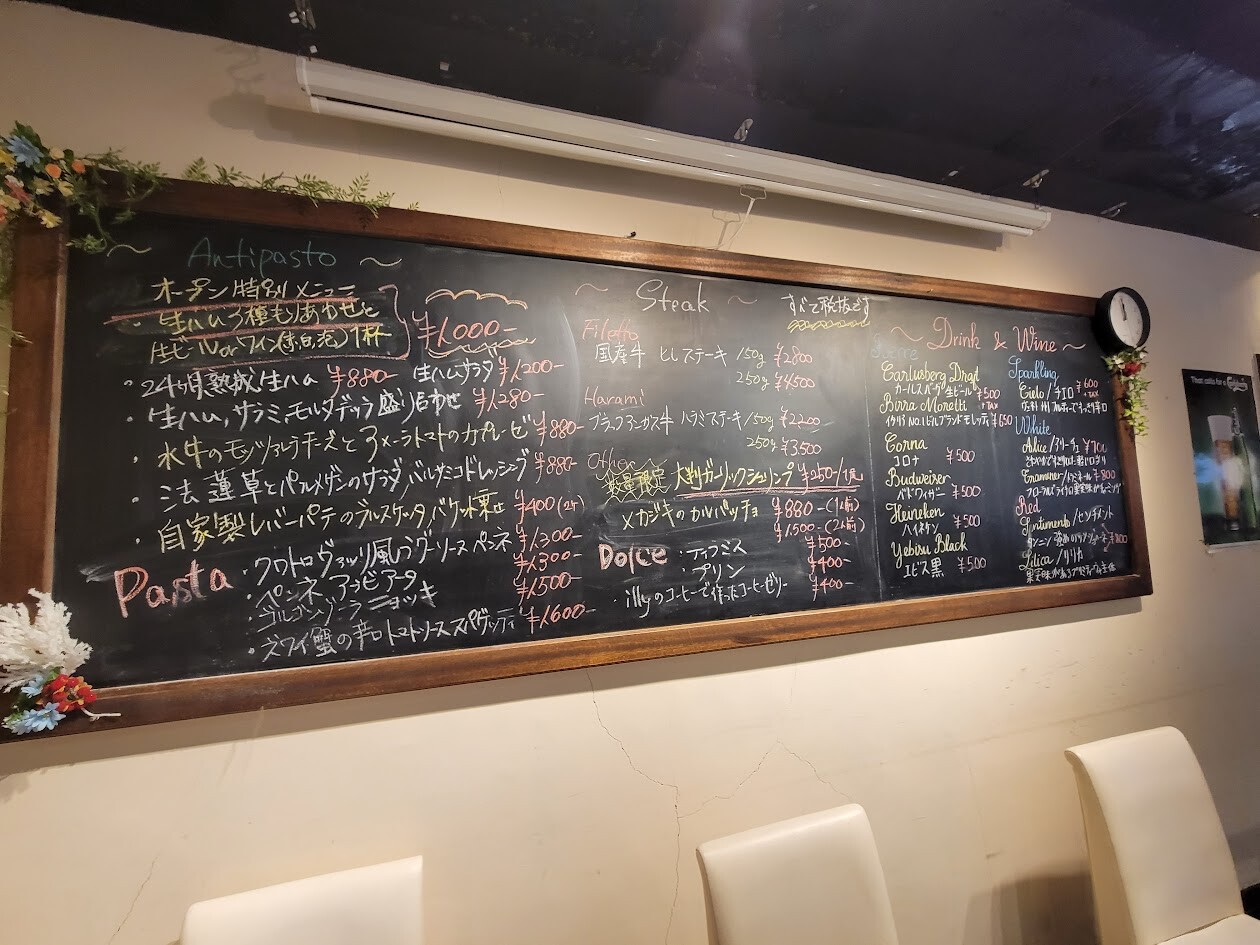 ~ Antipasto ~
オープン特別メニュー
・生ハム3種もりあわせと
生ビール or ワイン(赤,白,泡)1杯
¥1,000-
・24ヶ月熟成生ハム ¥880- 生ハムサラダ ¥1,200-
・生ハム,サラミ,モルタデッラ盛り合わせ ¥1,280-
・水牛のモッツァレラチーズとフルーツトマトのカプレーゼ ¥880-
・蓮草とパルメザンのサラダ バルサミコドレッシング ¥880-
・自家製レバーパテのブルスケッタ ¥400
Pasta
・クワトロ 風 ソースペンネ ¥1,300-
・ペンネアラビアータ ¥1,300-
・ゴルゴンゾーラニョッキ ¥1,500-
・ズワイ蟹の辛口トマトソーススパゲッティ ¥1,600-
~ Steak ~
すべて税抜です
Filetto
国産牛 ヒレステーキ 150g ¥2800
250g ¥4500
Harami
ブラックアンガス牛 ハラミステーキ 150g ¥2200
250g ¥3,500
Other
数量限定 大判ガーリックシュリンプ ¥250-/1尾
メカジキのカルパッチョ ¥880-(1人前)
¥1,500-(2人前)
Dolce
・ティラミス ¥500-
・プリン ¥400-
・illyのコーヒーで作ったコーヒーゼリー ¥400-
~ Drink & Wine ~
Carlusberg Drad
カールスバーグ生ビール ¥500
+TAX
Birra Moretti
イタリアNO.1ビールブランド モレッティ ¥650
Corna
コロナ ¥500
Budweiser
バドワイザー ¥500
Heineken
ハイネケン ¥500
Yebisu Black
エビス黒 ¥500
Sparkling
Cielo/チエロ ¥600
+TAX
White
Alice/アリーチェ ¥700
¥800
Red
Sentimento/センチメント
Lilica/リリカ